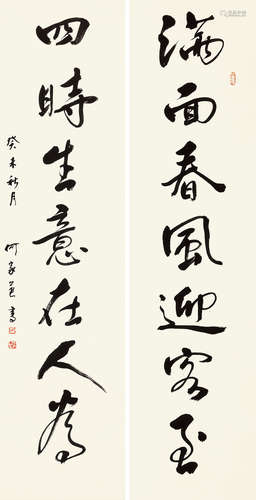 满面春風迎客至
四時生意在人為
癸未秋月
何家英書